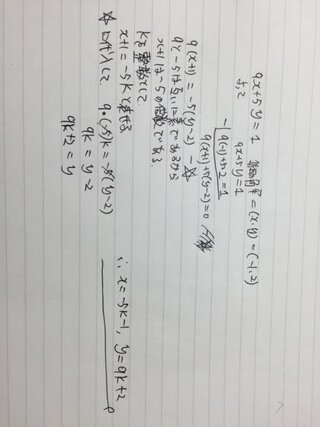 9x+5y=1 特殊解 = (x,y) = (-1,2)
よって
9x+5y=1
- 9(-1)+5・2=1
9(x+1)+5(y-2)=0
9(x+1) = -5(y-2) - ☆
9と-5は互いに素であるから
x+1は-5の倍数である
kを整数として
x+1=-5kとなる
☆に代入して 9・(-5)k=-5(y-2)
9k=y-2
9k+2=y
∴ x=-5k-1, y=9k+2